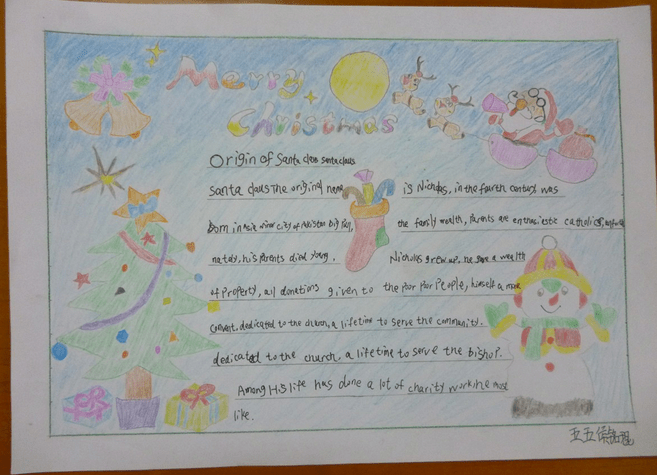 Merry
Christmas
Origin of Santa claus santa claus
santa claus The original name is Nicholas, in the fourth century was
Born in Asia minor city of the family wealth, parents are enthusiestic catholics,
nately, his parents died young. Nicholas grew up, he gave a wealth
of property, all donations given to the Poor Poor People, himself a
Convent, dedicated to the church, a lifetime to serve the community.
dedicated to the church, a lifetime to serve the bishop.
Among His life has done a lot of charity work, he most
like.
五五